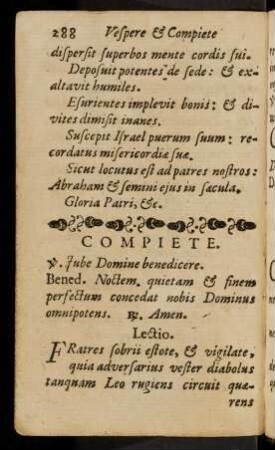 288 Vespere & Compiete
dispersit superbos mente cordis sui.
Deposuit potentes de sede: & ex-
altavit humiles.
Esurientes implevit bonis: & di-
vites dimisit inanes.
Suscepit Israel puerum suum: re-
cordatus misericordiæ suæ.
Sicut locutus est ad patres nostros:
Abraham & semini ejus in sæcula.
Gloria Patri, &c.
COMPIETE.
℣. Jube Domine benedicere.
Bened. Noctem quietam & finem
perfectum concedat nobis Dominus
omnipotens. ℟. Amen.
Lectio.
FRatres sobrii estote, & vigilate,
quia adversarius vester diabolus
tanquam Leo rugiens circuit quæ-
rens